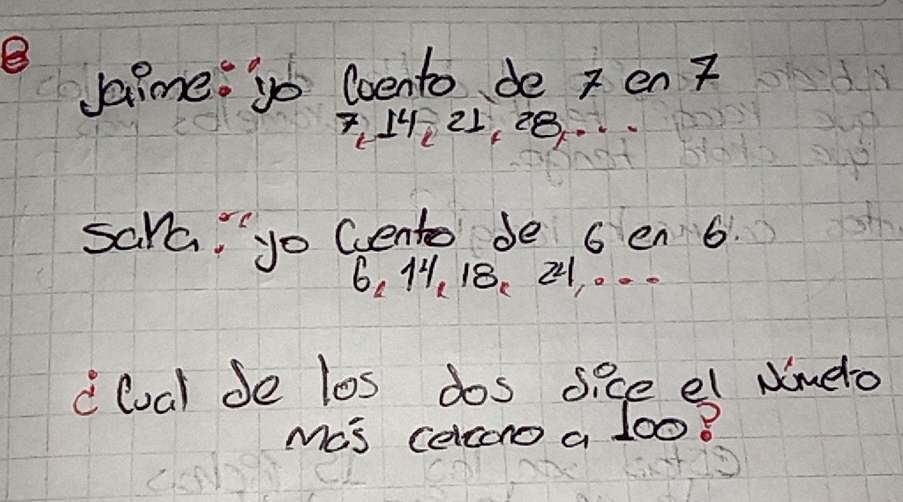 Jaime: "yo Coento de 7 en 7
7, 14, 21, 28, ...
Sara: "yo Cuento de 6 en 6.
6, 14, 18, 24, ...
¿Cual de los dos dice el Número
Más cercano a 100?